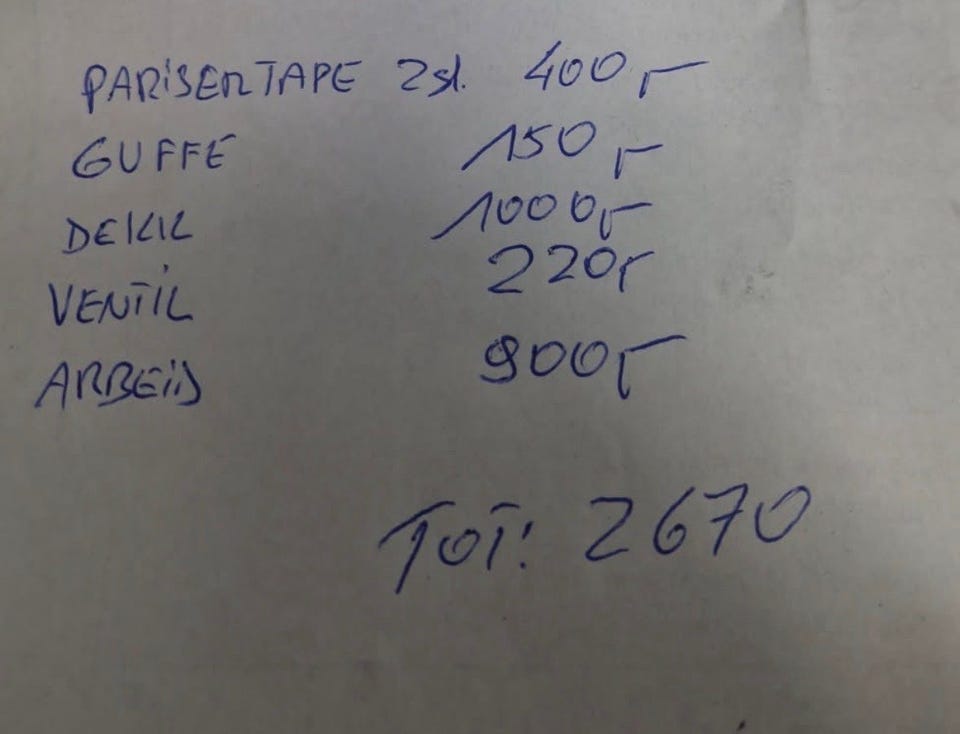 PARISERTAPE 2st. 400,-
GUFFE 150,-
DEKK 1000,-
VENTIL 220,-
ARBEID 900,-
TOT: 2670